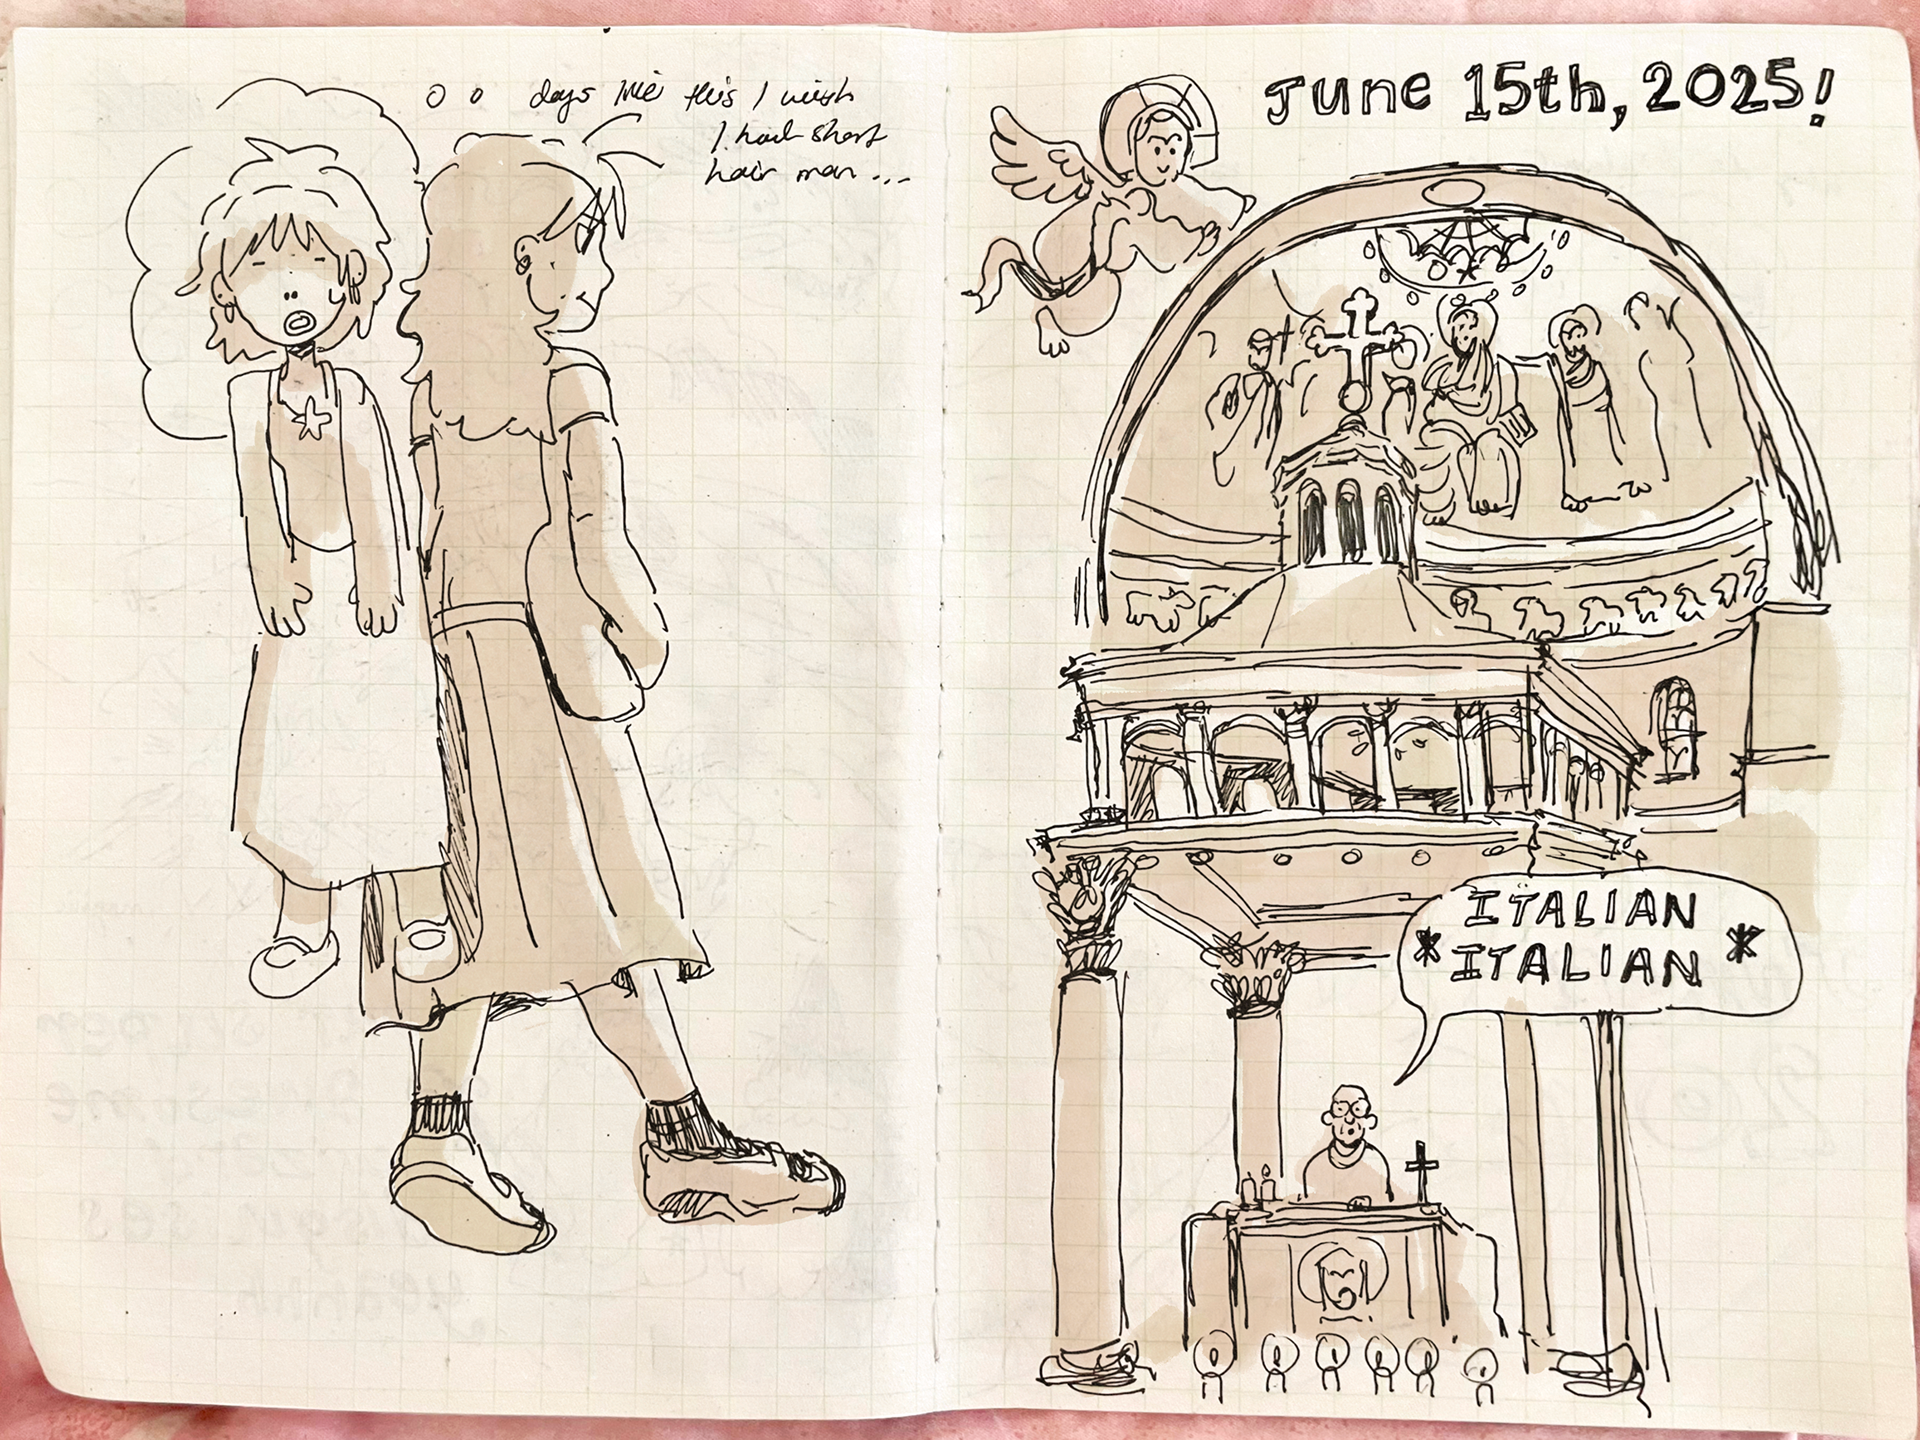 days like this I wish
I had short
hair man...
June 15th, 2025!
ITALIAN
*ITALIAN*